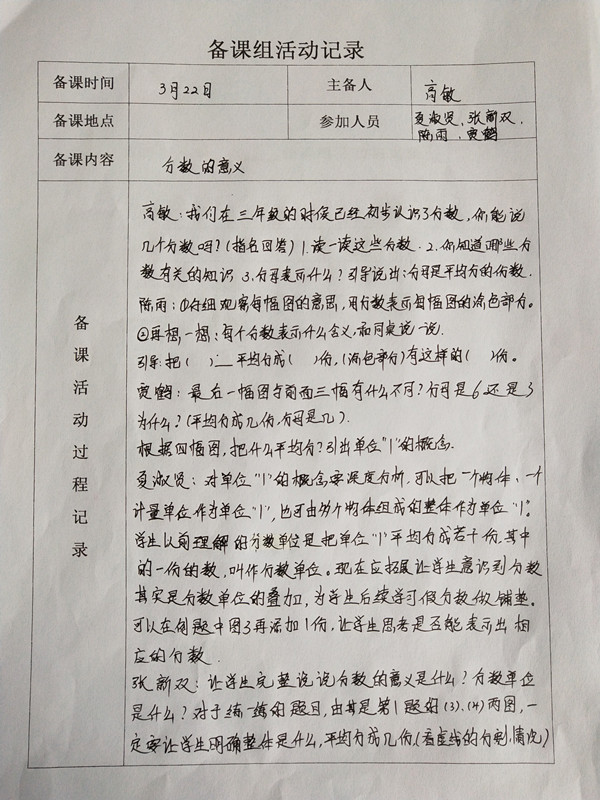 备课组活动记录
备课时间 3月22日 主备人 高敏
备课地点 参加人员 夏淑贤、张新双、
陈雨、贾鹤
备课内容 分数的意义
备课活动过程记录
高敏:我们在三年级的时候已经初步认识了分数,你能说
几个分数吗?(指名回答)1.读一读这些分数.2.你知道哪些分
数有关的知识 3.分母表示什么?引导说出:分母是平均分的份数.
陈雨:①仔细观察每幅图的意思,用分数表示每幅图的涂色部分。
②再想一想:每个分数表示什么含义,和同桌说一说.
引导:把( )__平均分成( )份,(涂色部分)有这样的( )份。
贾鹤:最后一幅图与前面三幅有什么不同?分母是6还是3
为什么?(平均分成几份,分母是几).
根据四幅图,把什么平均分?引出单位"1"的概念.
夏淑贤:对单位"1"的概念要深度分析,可以把一个物体、一个
计量单位作为单位"1",也可由许多个物体组成的整体作为单位"1"。
学生以前理解的分数单位是把单位"1"平均分成若干份,其中
的一份的数,叫作分数单位。现在应拓展让学生意识到分数
其实是分数单位的叠加,为学生后续学习假分数做铺垫。
可以在例题中图3再添加1份,让学生思考是否能表示出相
应的分数.
张新双:让学生完整说说分数的意义是什么?分数单位
是什么?对于练一练的题目,由其是第1题的(3)、(4)两图,一
定要让学生明确整体是什么,平均分成几份,(看虚线的分割.情况)